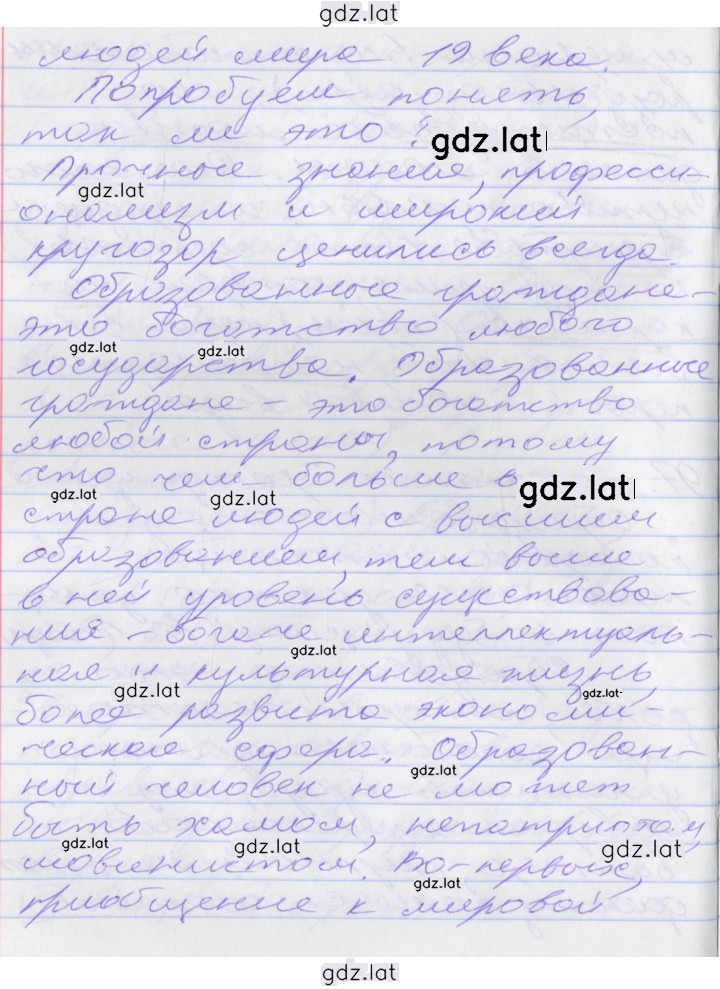 gdz.lat
людей мира 19 века.
Попробуем понять,
так ли это? gdz.lat
Прочные знания, професси-
gdz.lat
онализм и широкий
кругозор ценились всегда.
Образованные граждане-
это богатство любого
gdz.lat gdz.lat
государства. Образованные
граждане - это богатство
любой страны, потому
что чем больше в
gdz.lat gdz.lat gdz.lat
стране людей с высшим
образованием, тем выше
в ней уровень существова-
ния - богаче интеллектуаль-
gdz.lat
ная и культурная жизнь,
gdz.lat gdz.lat
более развита экономи-
ческая сфера. Образован-
gdz.lat
ный человек не может
быть хамом, непатриотом,
gdz.lat gdz.lat gdz.lat
шовинистом. Во-первых,
gdz.lat
приобщение к мировой
gdz.lat